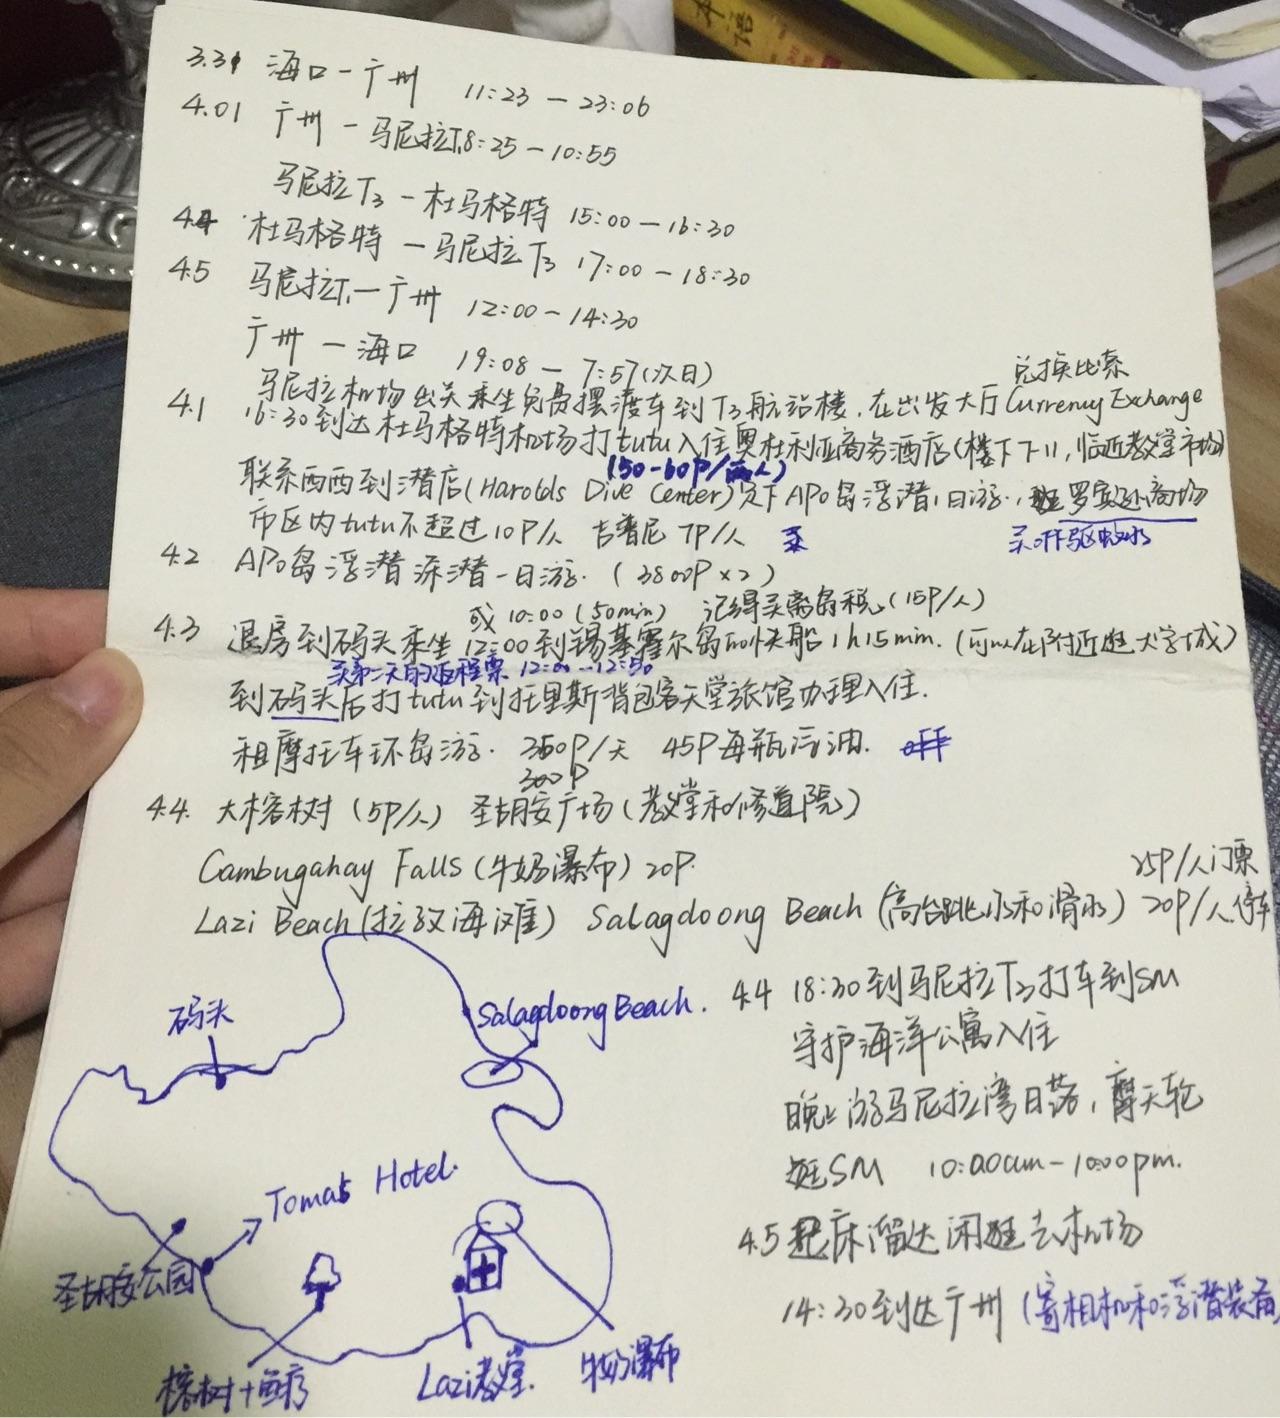 本语
3.31 海口 — 广州 11:23 — 23:06
4.01 广州 — 马尼拉T1 8:25 — 10:55
马尼拉T3 — 杜马格特 15:00 — 16:30
4.4 杜马格特 — 马尼拉T3 17:00 — 18:30
4.5 马尼拉T1 — 广州 12:00 — 14:30
广州 — 海口 19:08 — 7:57(次日)
兑换比索
4.1 马尼拉机场出关乘坐免费摆渡车到T3航站楼,在出发大厅Currency Exchange
16:30到达杜马格特机场打tutu入住奥杜利亚商务酒店(楼下711,临近教堂市场)
(50-60P/两人)
联系西西到潜店(Harolds Dive Center)定下APO岛浮潜1日游,逛罗宾逊商场
市区内tutu不超过10P/人 吉普尼 7P/人
买OFF驱蚊水
4.2 APO岛浮潜深潜一日游.(3800P×2)
或10:00(50min) 记得买离岛税(15P/人)
4.3 退房到码头乘坐12:00到锡基霍尔岛的快船1h15min.(可以在附近逛大学城)
买第二天的返程票 12:00-12:50
到码头后打tutu到托里斯背包客天堂旅馆办理入住.
租摩托车环岛游. 350P/天 45P每瓶汽油.
300P
4.4. 大榕树(5P/人) 圣胡安广场(教堂和修道院)
Cambugahay Falls(牛奶瀑布)20P.
25P/人门票
Lazi Beach(拉致海滩) Salagdoong Beach(高台跳水和滑水)20P/人停车
码头
Salagdoong Beach.
Tomas Hotel.
圣胡安公园
榕树+鱼疗
Lazi教堂.
牛奶瀑布
4.4 18:30到马尼拉T3打车到SM
守护海洋公寓入住
晚上游马尼拉湾日落,摩天轮
逛SM 10:00am-10:00pm.
4.5 起床溜达闲逛去机场
14:30到达广州(寄相机和浮潜装备